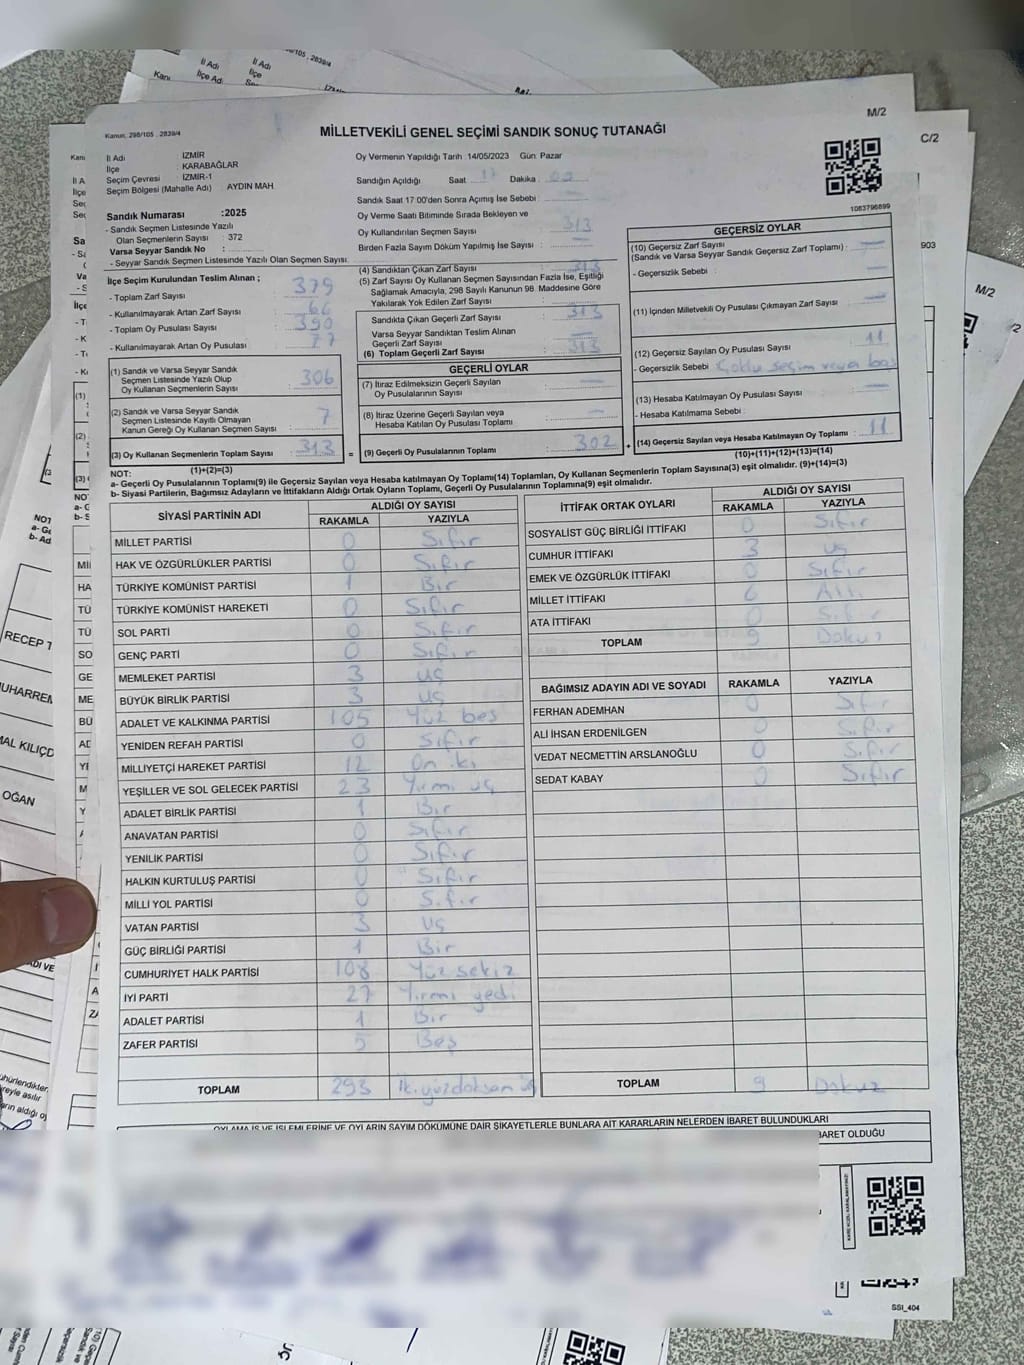 Kanun, 298/105 , 2839/4
MİLLETVEKİLİ GENEL SEÇİMİ SANDIK SONUÇ TUTANAĞI
M/2
C/2
İl Adı : İZMİR
İlçe : KARABAĞLAR
Seçim Çevresi : İZMİR-1
Seçim Bölgesi (Mahalle Adı) AYDIN MAH.
Sandık Numarası :2025
- Sandık Seçmen Listesinde Yazılı
Olan Seçmenlerin Sayısı : 372
Varsa Seyyar Sandık No :
- Seyyar Sandık Seçmen Listesinde Yazılı Olan Seçmen Sayısı:
Oy Vermenin Yapıldığı Tarih :14/05/2023 Gün: Pazar
Sandığın Açıldığı Saat : 17 Dakika : 00
Sandık Saat 17:00'den Sonra Açımış İse Sebebi :
Oy Verme Saati Bitiminde Sırada Bekleyen ve
Oy Kullandırılan Seçmen Sayısı : 313
Birden Fazla Sayım Döküm Yapılmış İse Sayısı :
1083796899
İlçe Seçim Kurulundan Teslim Alınan ;
- Toplam Zarf Sayısı : 379
- Kullanılmayarak Artan Zarf Sayısı : 66
- Toplam Oy Pusulası Sayısı : 390
- Kullanılmayarak Artan Oy Pusulası : 77
(1) Sandık ve Varsa Seyyar Sandık
Seçmen Listesinde Yazılı Olup
Oy Kullanan Seçmenlerin Sayısı : 306
(2) Sandık ve Varsa Seyyar Sandık
Seçmen Listesinde Kayıtlı Olmayan
Kanun Gereği Oy Kullanan Seçmen Sayısı : 7
(3) Oy Kullanan Seçmenlerin Toplam Sayısı : 313
(1)+(2)=(3)
(4) Sandıktan Çıkan Zarf Sayısı : 313
(5) Zarf Sayısı Oy Kullanan Seçmen Sayısından Fazla İse, Eşitliği
Sağlamak Amacıyla, 298 Sayılı Kanunun 98. Maddesine Göre
Yakılarak Yok Edilen Zarf Sayısı :
Sandıkta Çıkan Geçerli Zarf Sayısı : 313
Varsa Seyyar Sandıktan Teslim Alınan
Geçerli Zarf Sayısı :
(6) Toplam Geçerli Zarf Sayısı : 313
GEÇERLİ OYLAR
(7) İtiraz Edilmeksizin Geçerli Sayılan
Oy Pusulalarının Sayısı :
(8) İtiraz Üzerine Geçerli Sayılan veya
Hesaba Katılan Oy Pusulası Toplamı :
(9) Geçerli Oy Pusulalarının Toplamı : 302
GEÇERSİZ OYLAR
(10) Geçersiz Zarf Sayısı
(Sandık ve Varsa Seyyar Sandık Geçersiz Zarf Toplamı) :
- Geçersizlik Sebebi :
(11) İçinden Milletvekili Oy Pusulası Çıkmayan Zarf Sayısı :
(12) Geçersiz Sayılan Oy Pusulası Sayısı : 11
- Geçersizlik Sebebi : Çoklu seçim veya boş
(13) Hesaba Katılmayan Oy Pusulası Sayısı :
- Hesaba Katılmama Sebebi :
(14) Geçersiz Sayılan veya Hesaba Katılmayan Oy Toplamı : 11
(10)+(11)+(12)+(13)=(14)
NOT:
a- Geçerli Oy Pusulalarının Toplamı(9) ile Geçersiz Sayılan veya Hesaba katılmayan Oy Toplamı(14) Toplamları, Oy Kullanan Seçmenlerin Toplam Sayısına(3) eşit olmalıdır. (9)+(14)=(3)
b- Siyasi Partilerin, Bağımsız Adayların ve İttifakların Aldığı Ortak Oyların Toplamı, Geçerli Oy Pusulalarının Toplamına(9) eşit olmalıdır.
SİYASİ PARTİNİN ADI ALDIĞI OY SAYISI
RAKAMLA YAZIYLA
MİLLET PARTİSİ 0 Sıfır
HAK VE ÖZGÜRLÜKLER PARTİSİ 0 Sıfır
TÜRKİYE KOMÜNİST PARTİSİ 1 Bir
TÜRKİYE KOMÜNİST HAREKETİ 0 Sıfır
SOL PARTİ 0 Sıfır
GENÇ PARTİ 0 Sıfır
MEMLEKET PARTİSİ 3 Üç
BÜYÜK BİRLİK PARTİSİ 3 Üç
ADALET VE KALKINMA PARTİSİ 105 Yüz beş
YENİDEN REFAH PARTİSİ 0 Sıfır
MİLLİYETÇİ HAREKET PARTİSİ 12 On iki
YEŞİLLER VE SOL GELECEK PARTİSİ 23 Yirmi üç
ADALET BİRLİK PARTİSİ 1 Bir
ANAVATAN PARTİSİ 0 Sıfır
YENİLİK PARTİSİ 0 Sıfır
HALKIN KURTULUŞ PARTİSİ 0 Sıfır
MİLLİ YOL PARTİSİ 0 Sıfır
VATAN PARTİSİ 3 Üç
GÜÇ BİRLİĞİ PARTİSİ 1 Bir
CUMHURİYET HALK PARTİSİ 108 Yüz sekiz
İYİ PARTİ 27 Yirmi yedi
ADALET PARTİSİ 1 Bir
ZAFER PARTİSİ 5 Beş
TOPLAM 293 İki yüz doksan üç
İTTİFAK ORTAK OYLARI ALDIĞI OY SAYISI
RAKAMLA YAZIYLA
SOSYALİST GÜÇ BİRLİĞİ İTTİFAKI 0 Sıfır
CUMHUR İTTİFAKI 3 Üç
EMEK VE ÖZGÜRLÜK İTTİFAKI 0 Sıfır
MİLLET İTTİFAKI 6 Altı
ATA İTTİFAKI 0 Sıfır
TOPLAM 9 Dokuz
BAĞIMSIZ ADAYIN ADI VE SOYADI RAKAMLA YAZIYLA
FERHAN ADEMHAN 0 Sıfır
ALİ İHSAN ERDENİLGEN 0 Sıfır
VEDAT NECMETTİN ARSLANOĞLU 0 Sıfır
SEDAT KABAY 0 Sıfır
TOPLAM 9 Dokuz
OYLAMA İŞ VE İŞLEMLERİNE VE OYLARIN SAYIM DÖKÜMÜNE DAİR ŞİKAYETLERLE BUNLARA AİT KARARLARIN NELERDEN İBARET BULUNDUKLARI
BARET OLDUĞU
SSİ_404
M/2
903
RECEP T
UHARREM
MAL KILIÇD
OĞAN